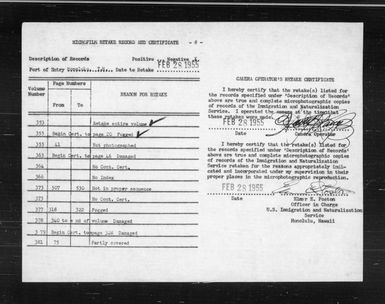 MICROFILM RETAKE RECORD AND CERTIFICATE - 6 -
Description of Records Positive Negative
Port of Entry Honolulu, T.H. Date to Retake FEB 28 1955
Volume Number Page Numbers From To REASON FOR RETAKE
353 Retake entire volume
355 Begin Cert. to page 20 Fogged
355 41 Not photographed
363 Begin Cert. to page 46 Damaged
364 No Cont. Cert.
366 No Cont. Cert.
366 No Index
373 507 539 Not in proper sequence
373 No Cont. Cert.
377 318 322 Fogged
378 340 to end of volume Damaged
379 Begin Cert. to page 346 Damaged
381 75 Partly covered
CAMERA OPERATOR'S RETAKE CERTIFICATE
I hereby certify that the retake(s) listed for
the records specified under "Description of Records"
above are true and complete microphotographic copies
of records of the Immigration and Naturalization
Service. I operated the camera at the time that
these retakes were under.
FEB 28 1955
Date Camera Operator
I hereby certify that the retake(s) listed for the
records specified under "Description of Records"
above are true and complete microphotographic copies
of records of the Immigration and Naturalization
Service retaken for the reasons appropriately indi-
cated and incorporated under my supervision in their
proper places in the microphotographic reproduction.
FEB 28 1955
Date Elmer E. Poston
Officer in Charge
U.S. Immigration and Naturalization
Service
Honolulu, Hawaii